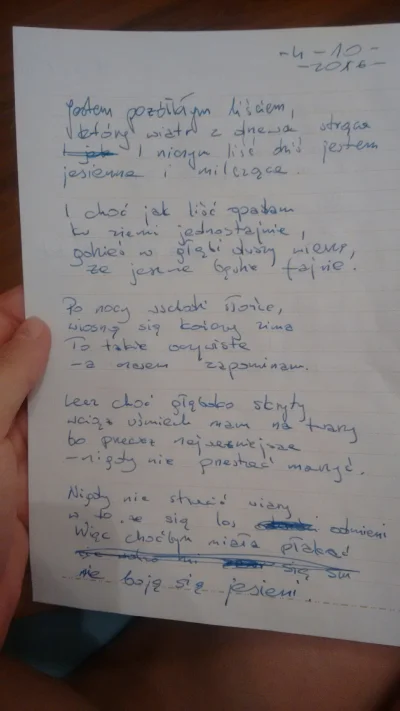 -4-10-
-2016-
Jestem pożółkłym liściem,
który wiatr z drzewa strąca
I niczym liść dziś jestem
jesienna i milcząca.
I choć jak liść opadam
ku ziemi jednostajnie,
gdzieś w głębi duszy wierzę,
że jeszcze będzie fajnie.
Po nocy wschodzi słońce,
wiosną się kończy zima
To takie oczywiste
- a czasem zapominam.
Lecz choć głęboko skryty
wciąż uśmiech mam na twarzy
bo przecież najważniejsze
- nigdy nie przestać marzyć.
Nigdy nie stracić wiary
w to, że się los odmieni
Więc choćbym miała płakać
nie boję się jesieni.